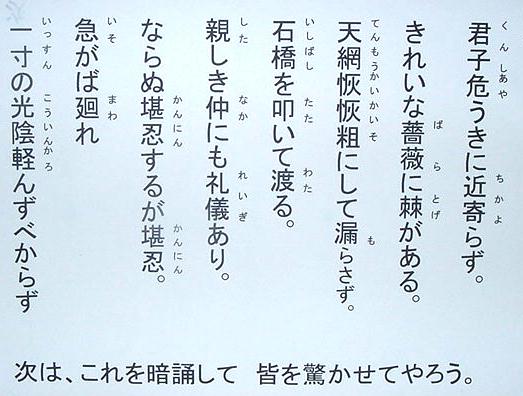 君子危うきに近寄らず。
きれいな薔薇に棘がある。
天網恢恢粗にして漏らさず。
石橋を叩いて渡る。
親しき仲にも礼儀あり。
ならぬ堪忍するが堪忍。
急がば廻れ
一寸の光陰軽んずべからず
次は、これを暗誦して 皆を驚かせてやろう。